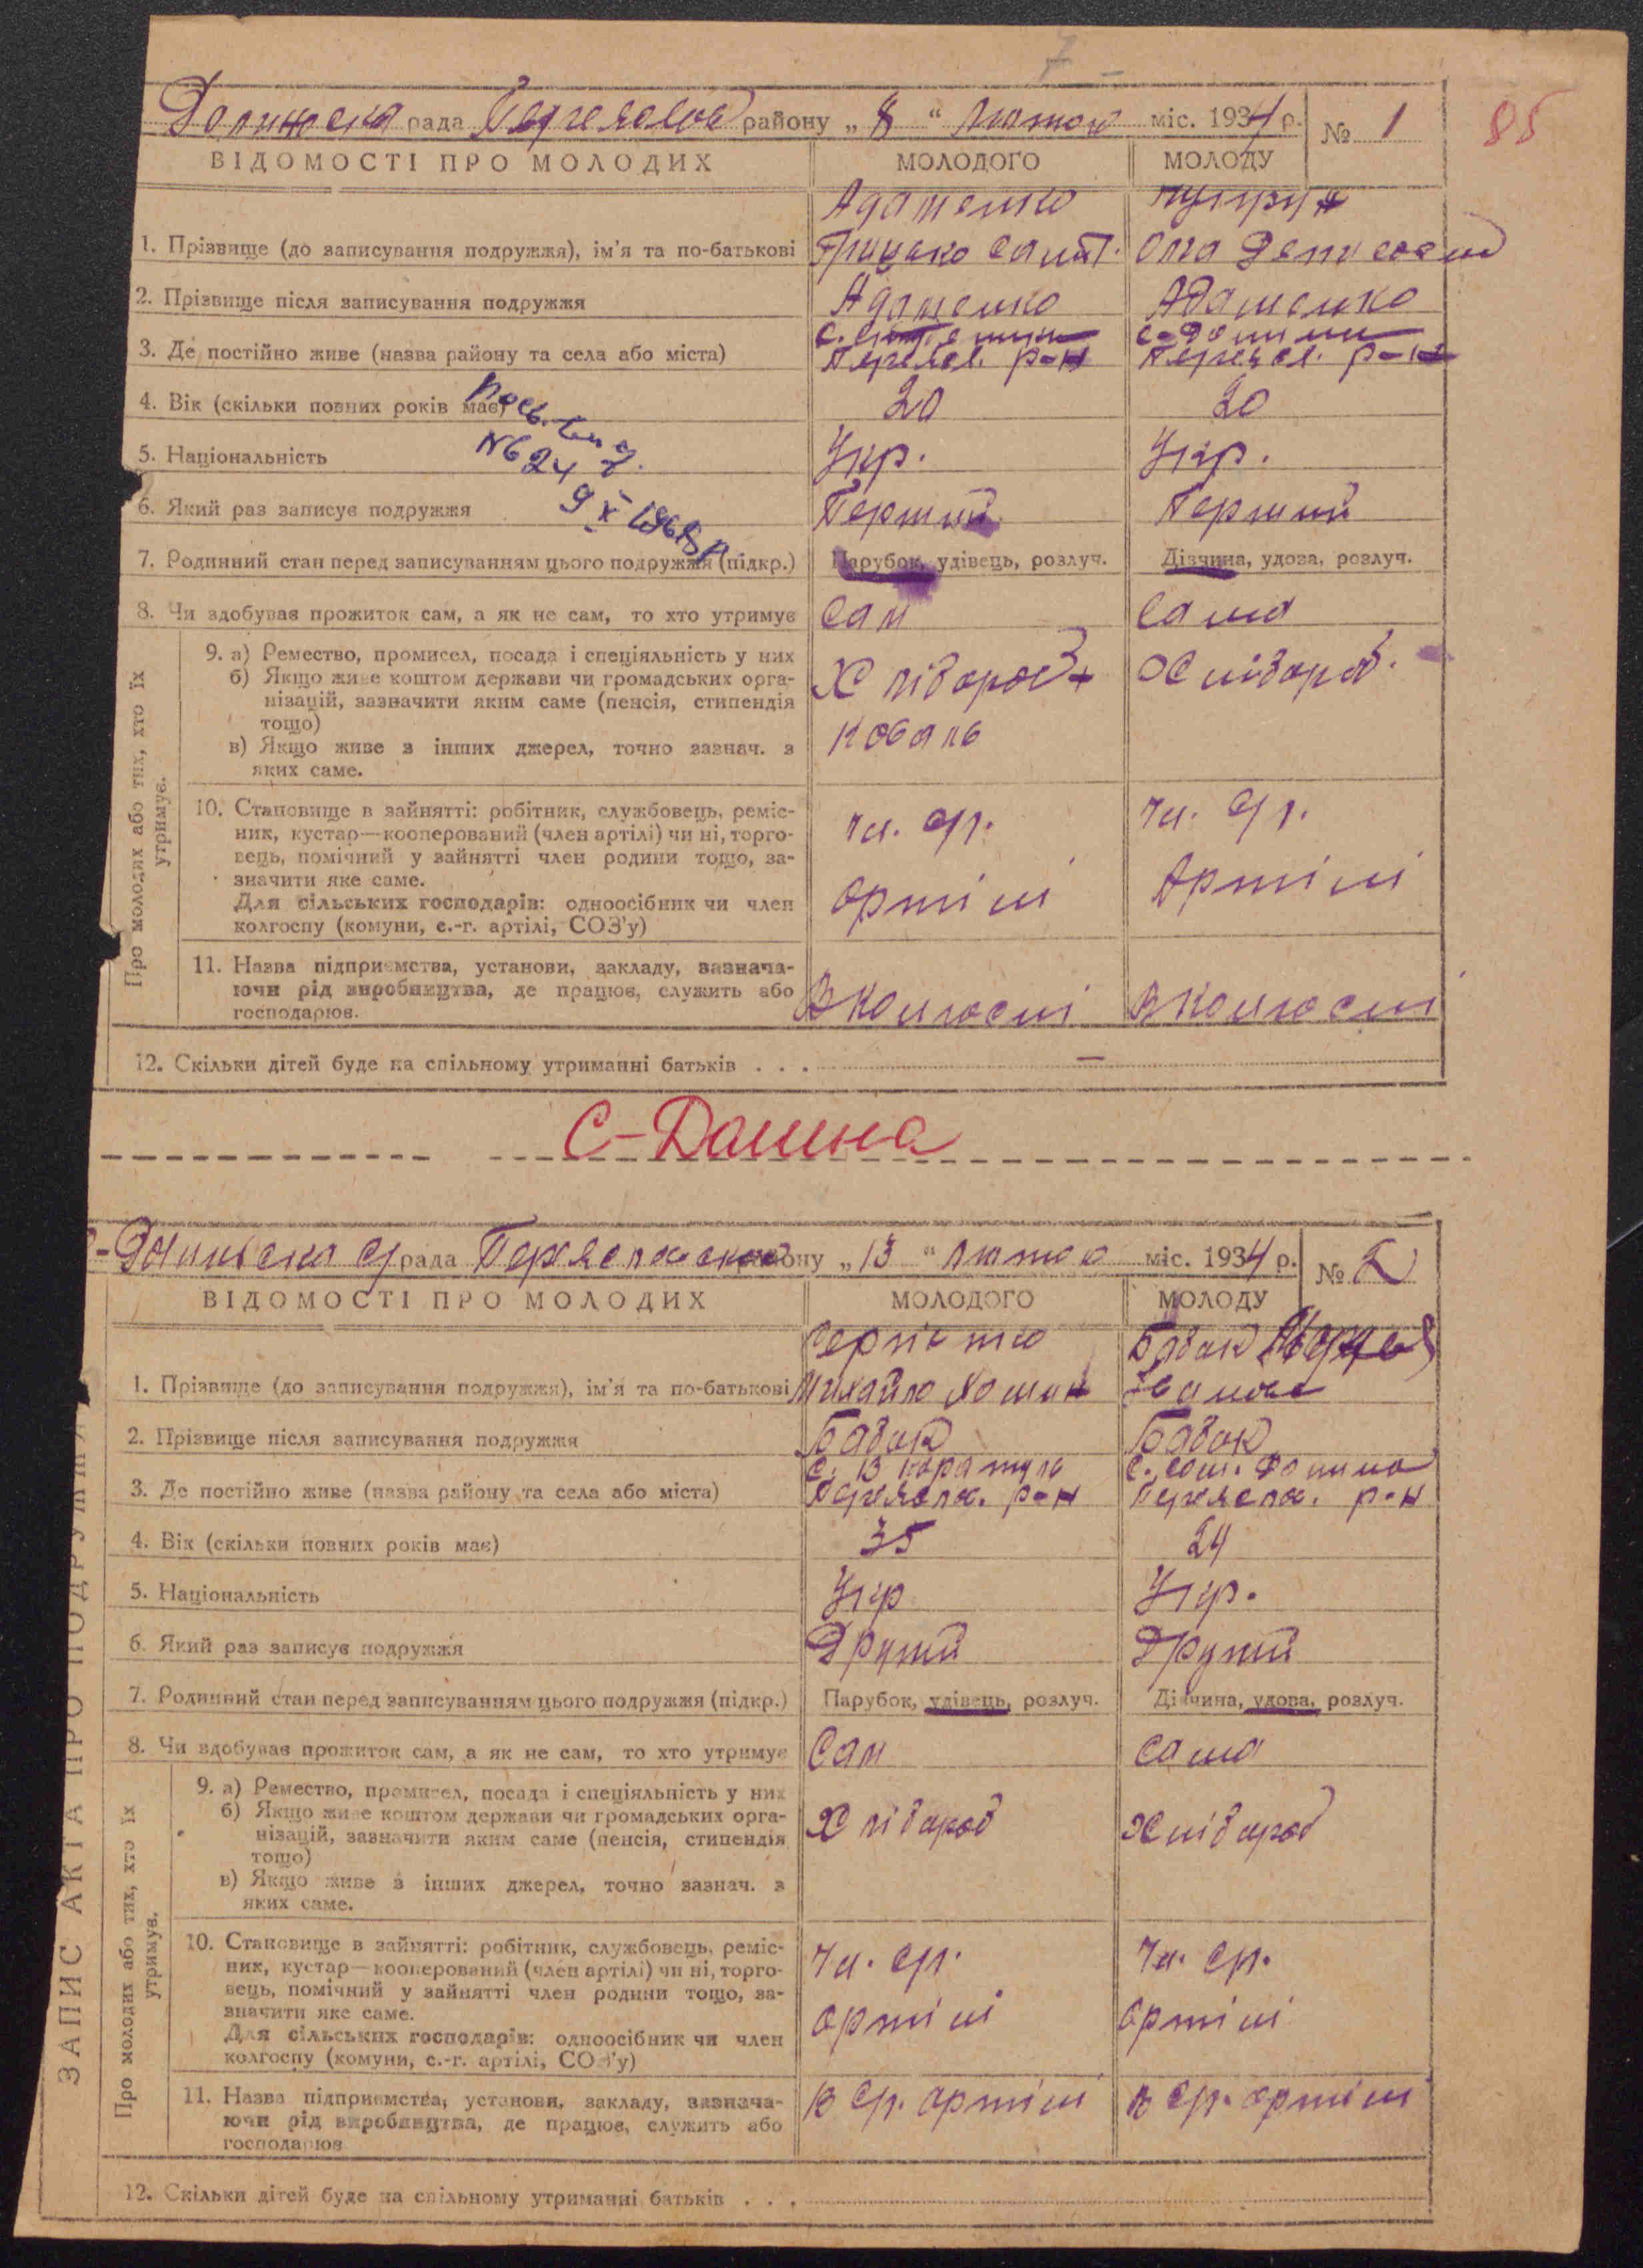 7
85
рада району „ 8 “ Лютого міс. 1934 р. № 1
ВІДОМОСТІ ПРО МОЛОДИХ МОЛОДОГО МОЛОДУ
Адаменко
1. Прізвище (до записування подружжя), ім'я та по-батькові Грицько
2. Прізвище після записування подружжя Адаменко Адаменко
3. Де постійно живе (назва району та села або міста) р-н р-н
4. Вік (скільки повних років має) 20 20
5. Національність Укр. Укр.
№ 624
9 X 1968 р
6. Який раз записує подружжя Перший Перший
7. Родинний стан перед записуванням цього подружжя (підкр.) Парубок, удівець, розлуч. Дівчина, удова, розлуч.
8. Чи здобував прожиток сам, а як не сам, то хто утримує Сам Сама
Про молодих або тих, хто їх утримує.
9. а) Ремество, промисел, посада і спеціяльність у них Хлібороб Хлібороб.
б) Якщо живе коштом держави чи громадських орга-
нізацій, зазначити яким саме (пенсія, стипендія
тощо) коваль
в) Якщо живе з інших джерел, точно зазнач. з
яких саме.
10. Становище в зайнятті: робітник, службовець, реміс-
ник, кустар—кооперований (член артілі) чи ні, торго- чл. с/г. чл. с/г.
вець, помічний у зайнятті член родини тощо, за-
значити яке саме. артілі Артілі
Для сільських господарів: одноосібник чи член
колгоспу (комуни, с.-г. артілі, СОЗ'у)
11. Назва підприємства, установи, закладу, зазнача-
ючи рід виробництва, де працює, служить або В колгоспі В колгоспі
господарює.
12. Скільки дітей буде на спільному утриманні батьків . . . —
С-Долина
рада району „ 13 “ лютого міс. 1934 р. № 2
ВІДОМОСТІ ПРО МОЛОДИХ МОЛОДОГО МОЛОДУ
Бабак
1. Прізвище (до записування подружжя), ім'я та по-батькові Михайло Хомич
2. Прізвище після записування подружжя Бабак Бабак
с. В Каратуль
3. Де постійно живе (назва району та села або міста) р-н р-н
4. Вік (скільки повних років має) 35 24
5. Національність Укр Укр.
6. Який раз записує подружжя Другий Другий
7. Родинний стан перед записуванням цього подружжя (підкр.) Парубок, удівець, розлуч. Дівчина, удова, розлуч.
8. Чи здобував прожиток сам, а як не сам, то хто утримує Сам Сама
ЗАПИС АКТА ПРО ПОДРУЖЖЯ
Про молодих або тих, хто їх утримує.
9. а) Ремество, промисел, посада і спеціяльність у них
б) Якщо живе коштом держави чи громадських орга- Хлібороб Хлібороб
нізацій, зазначити яким саме (пенсія, стипендія
тощо)
в) Якщо живе з інших джерел, точно зазнач. з
яких саме.
10. Становище в зайнятті: робітник, службовець, реміс-
ник, кустар—кооперований (член артілі) чи ні, торго- чл. с/г. чл. с/г.
вець, помічний у зайнятті член родини тощо, за-
значити яке саме. артілі артілі
Для сільських господарів: одноосібник чи член
колгоспу (комуни, с.-г. артілі, СОЗ'у)
11. Назва підприємства, установи, закладу, зазнача- В с/г. артілі В с/г. артілі
ючи рід виробництва, де працює, служить або
господарює
12. Скільки дітей буде на спільному утриманні батьків . . .